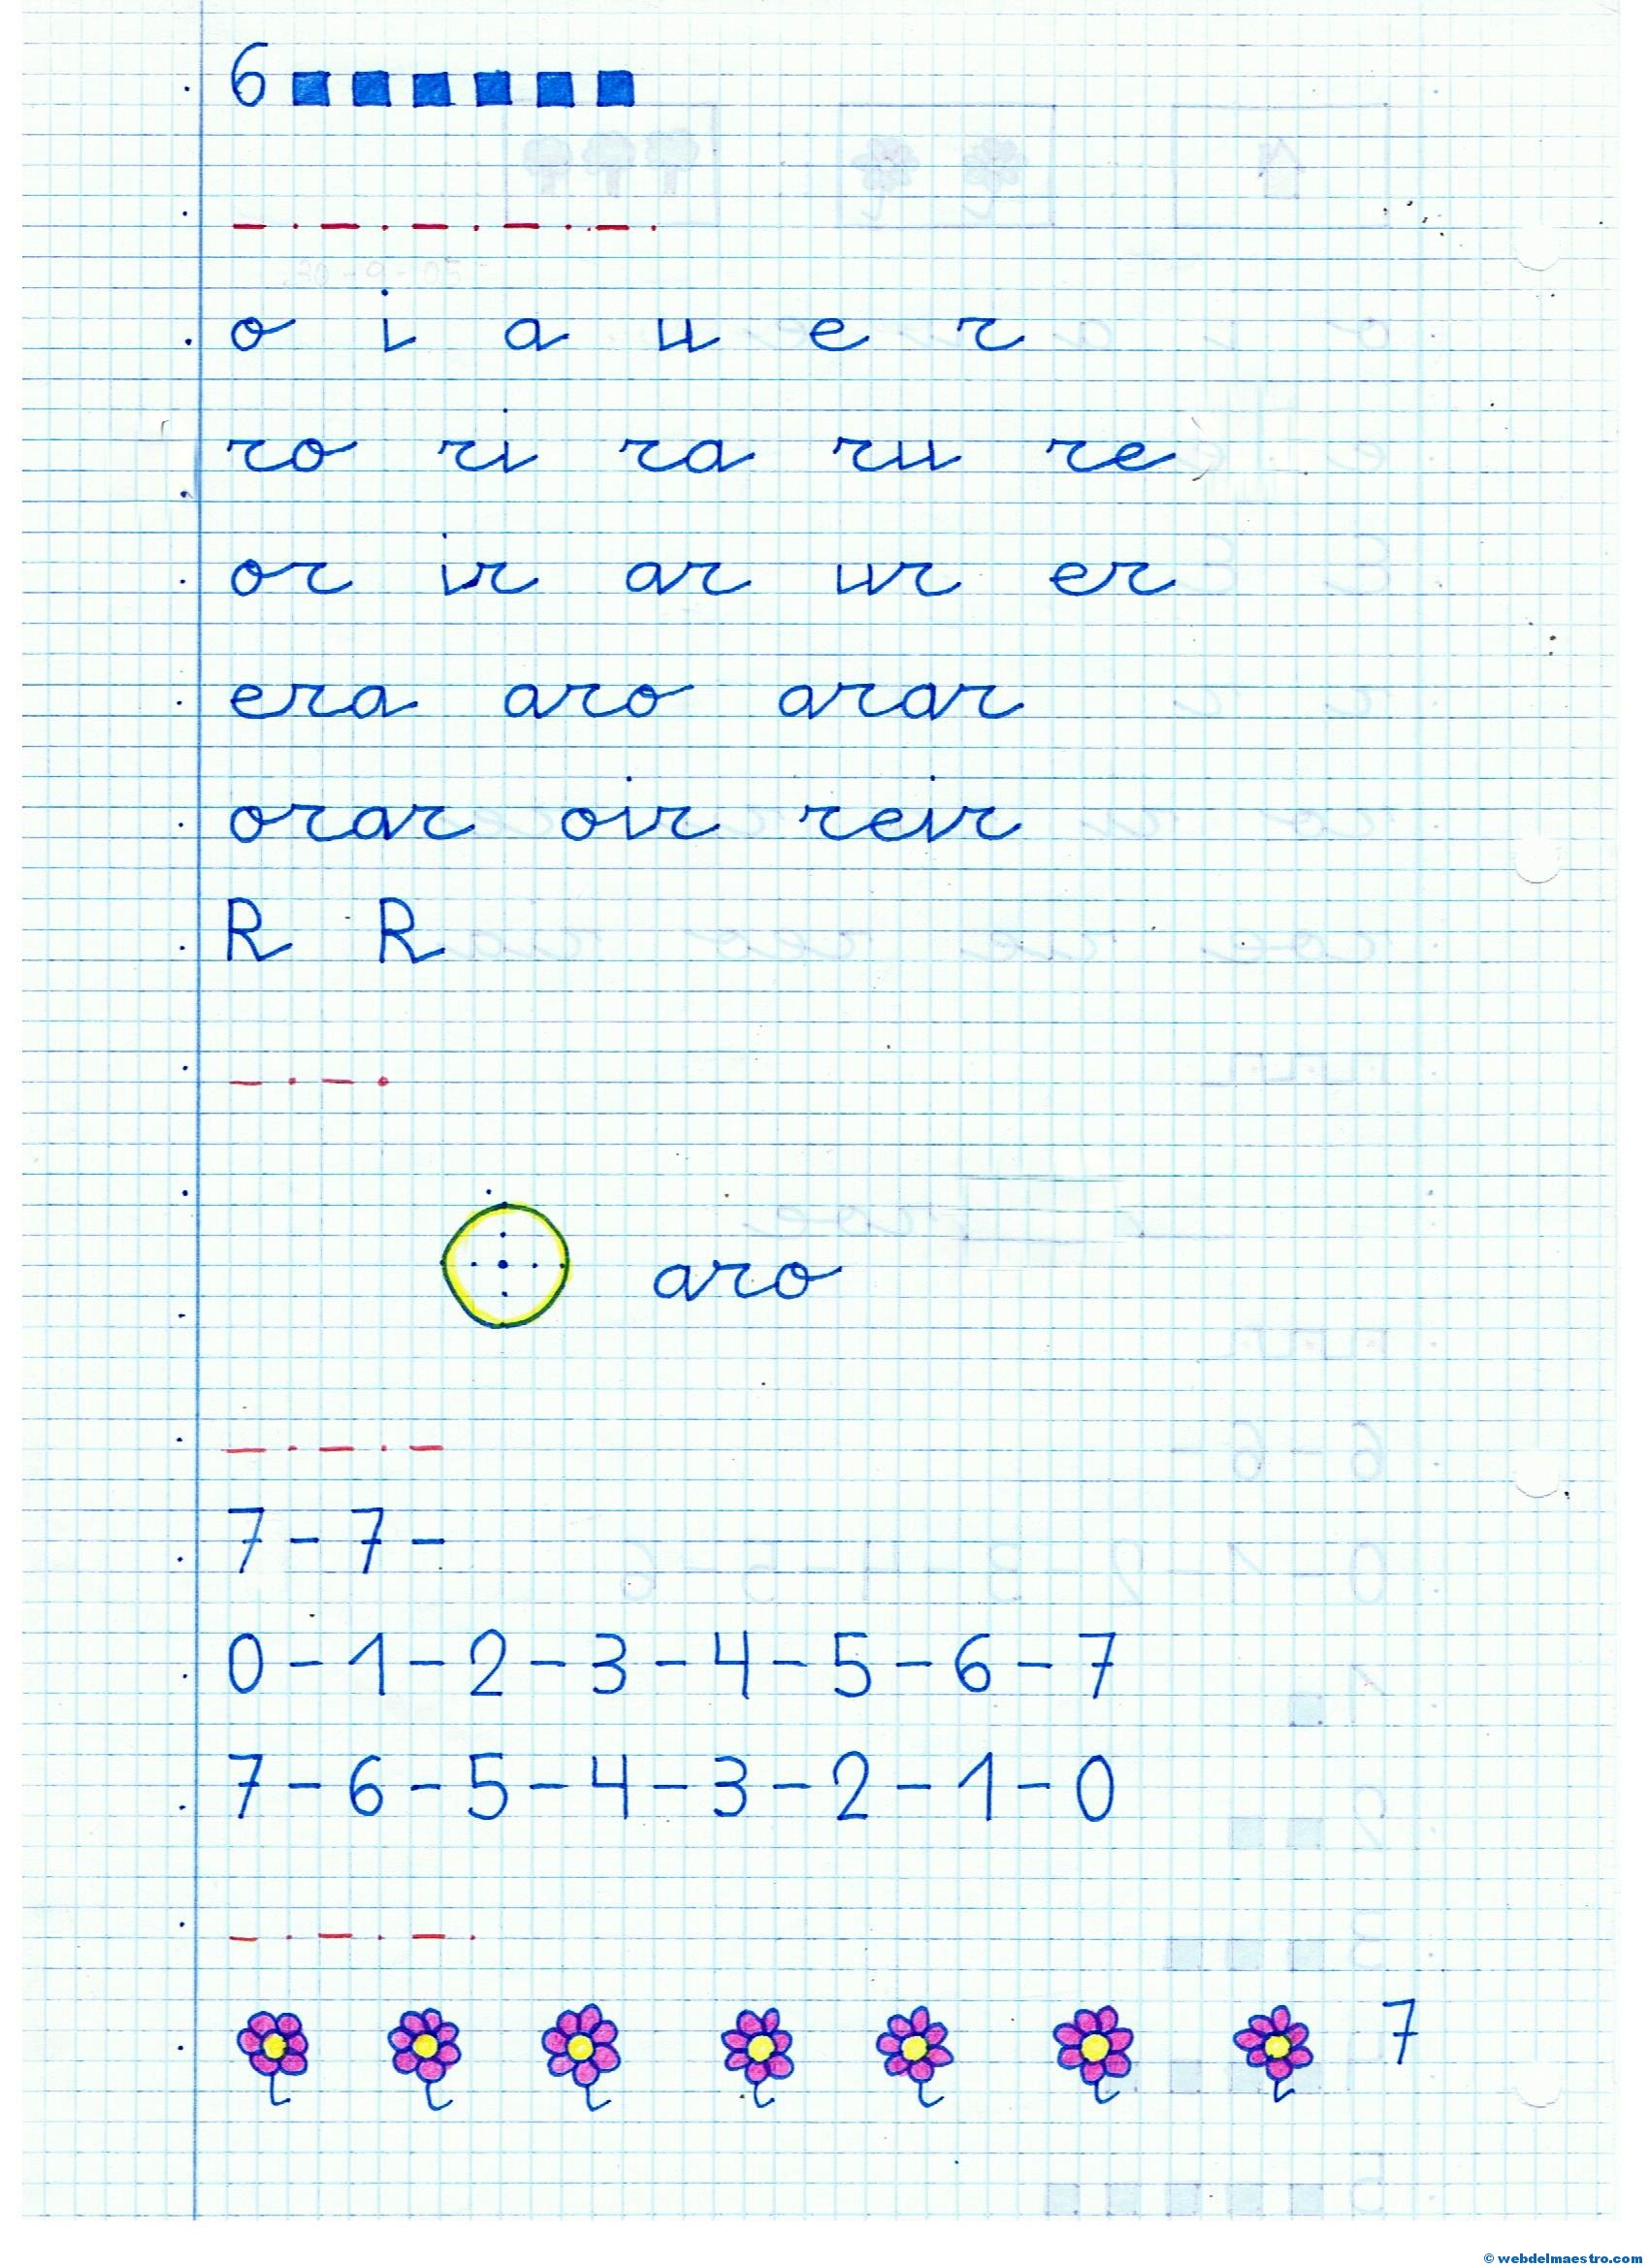 6
o i a u e r
ro ri ra ru re
or ir ar ur er
era aro arar
orar oir reir
R R
aro
7 - 7 -
0 - 1 - 2 - 3 - 4 - 5 - 6 - 7
7 - 6 - 5 - 4 - 3 - 2 - 1 - 0
7
© webdelmaestro.com